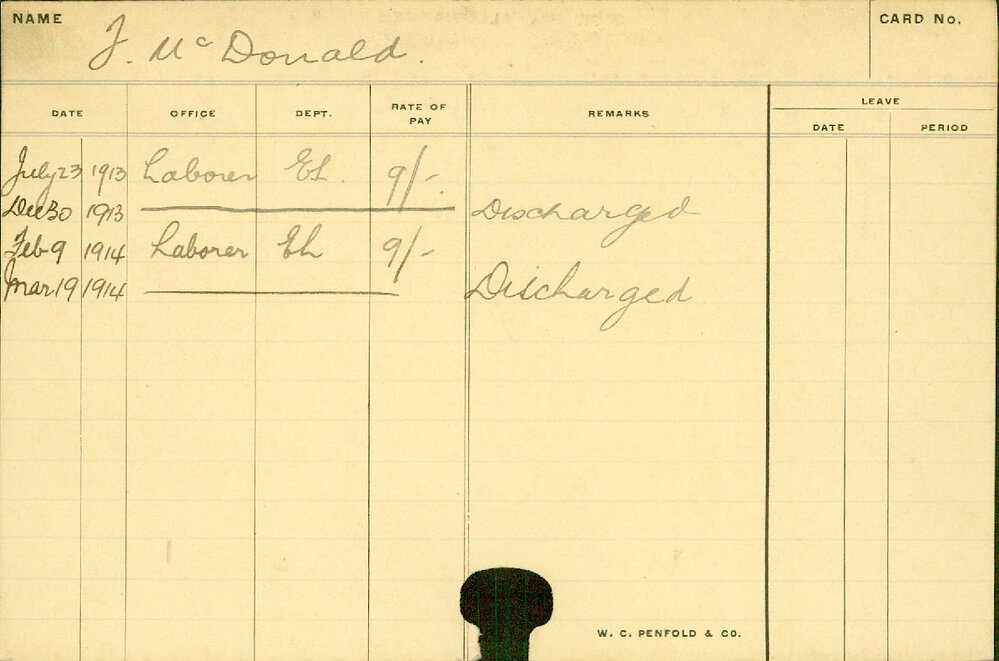 NAME J. McDonald. CARD No.
DATE OFFICE DEPT. RATE OF PAY REMARKS LEAVE
DATE PERIOD
July 23 1913 Laborer EL. 9/-.
Dec 30 1913 Discharged
Feb 9 1914 Laborer EL 9/-
Mar 19 1914 Discharged
W. C. PENFOLD & CO.